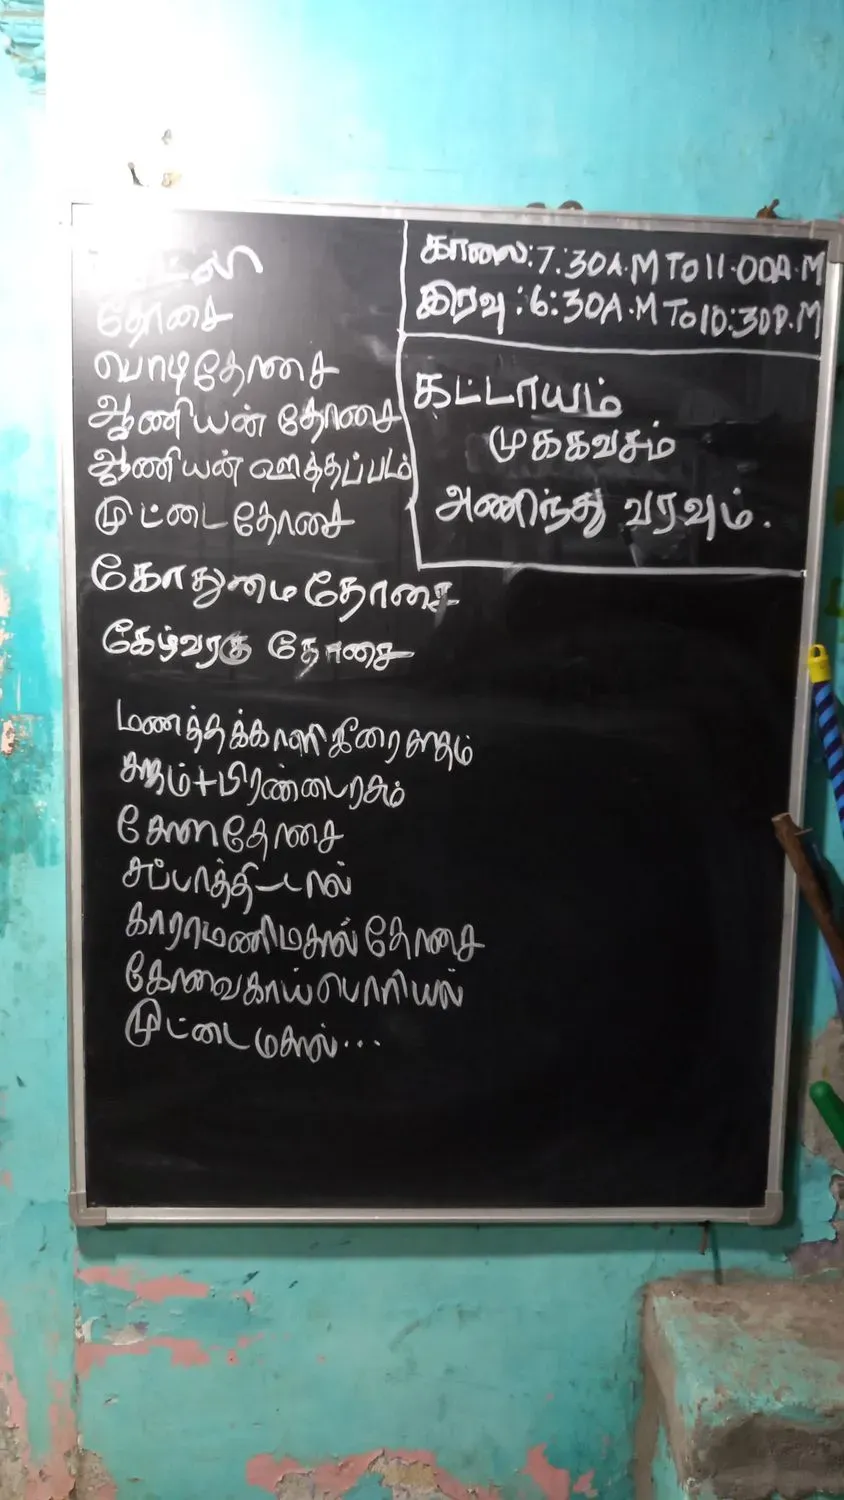 தோசை
பொடிதோசை
ஆனியன் தோசை
ஆனியன் ஊத்தப்பம்
முட்டைதோசை
கோதுமைதோசை
கேழ்வரகு தோசை
மணத்தக்காளிகீரைசாதம்
சாதம்+பிரண்டைரசம்
சோளதோசை
சப்பாத்தி-டால்
காராமணிமசால்தோசை
கோவைகாய்பொரியல்
முட்டைமசால்...
காலை:7.30A.M TO 11.00A.M
இரவு:6:30A.M TO 10:30P.M
கட்டாயம்
முககவசம்
அணிந்து வரவும்.